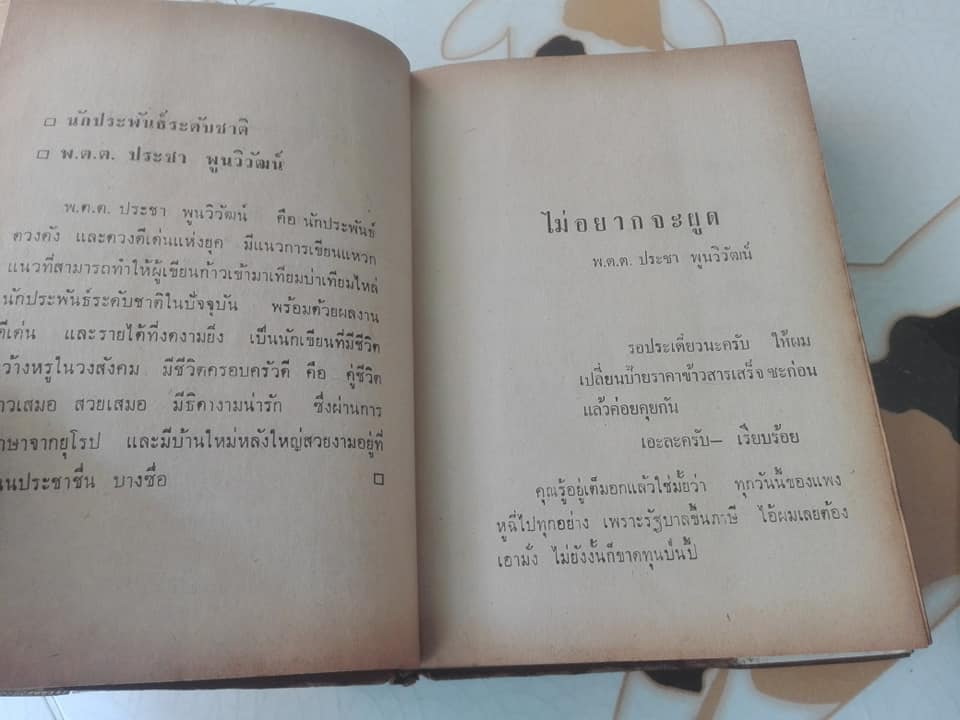 นักประพันธ์ระดับชาติ
พ.ต.ต. ประชา พูนวิวัฒน์
พ.ต.ต. ประชา พูนวิวัฒน์ คือ นักประพันธ์
ดวงดัง และดวงดีเด่นแห่งยุค มีแนวการเขียนแหวก
แนวที่สามารถทำให้ผู้เขียนก้าวเข้ามาเทียมบ่าเทียมไหล่
นักประพันธ์ระดับชาติในปัจจุบัน พร้อมด้วยผลงาน
ดีเด่น และรายได้ที่งดงามยิ่ง เป็นนักเขียนที่มีชีวิต
ว้างหรูในวงสังคม มีชีวิตครอบครัวดี คือ คู่ชีวิต
าวเสมอ สวยเสมอ มีธิดางามน่ารัก ซึ่งผ่านการ
าษาจากยุโรป และมีบ้านใหม่หลังใหญ่สวยงามอยู่ที่
นนประชาชื่น บางซื่อ
ไม่อยากจะผูด
พ.ต.ต. ประชา พูนวิวัฒน์
รอประเดี๋ยวนะครับ ให้ผม
เปลี่ยนป้ายราคาข้าวสารเสร็จซะก่อน
แล้วค่อยคุยกัน
เอะละครับ— เรียบร้อย
คุณรู้อยู่เต็มอกแล้วใช่มั้ยว่า ทุกวันนี้ของแพง
หูฉี่ไปทุกอย่าง เพราะรัฐบาลขึ้นภาษี ไอ้ผมเลยต้อง
เอามั่ง ไม่ยังงั้นก็ขาดทุนป่นปี้